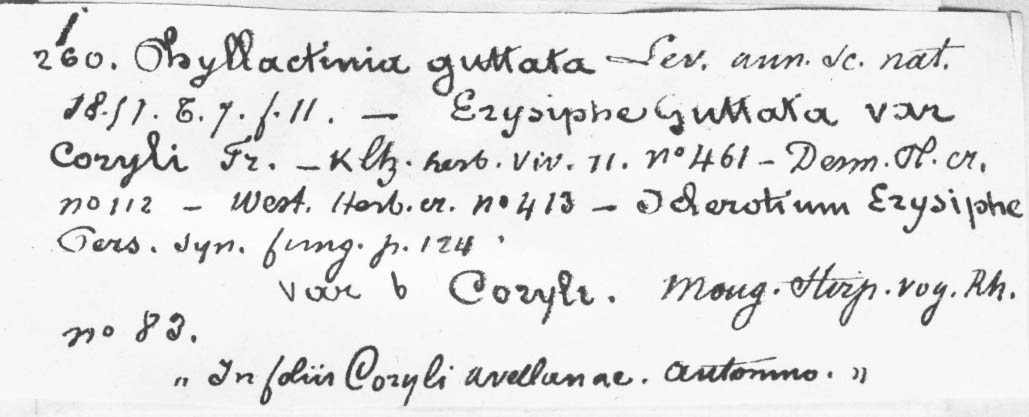 260. Phyllactinia guttata Lev. ann. Sc. nat.
1851. t. 7. f. 11. — Erysiphe Guttata var
Coryli Fr. — Kltz. herb. viv. n. nº 461 — Desm. Pl. cr.
nº 112 — West. Herb. cr. nº 413 — Sclerotium Erysiphe
Pers. Syn. fung. p. 124
var b Coryli. Moug. Stirp. vog. Rh.
nº 83.
„ In foliis Coryli avellanae. Automno. „